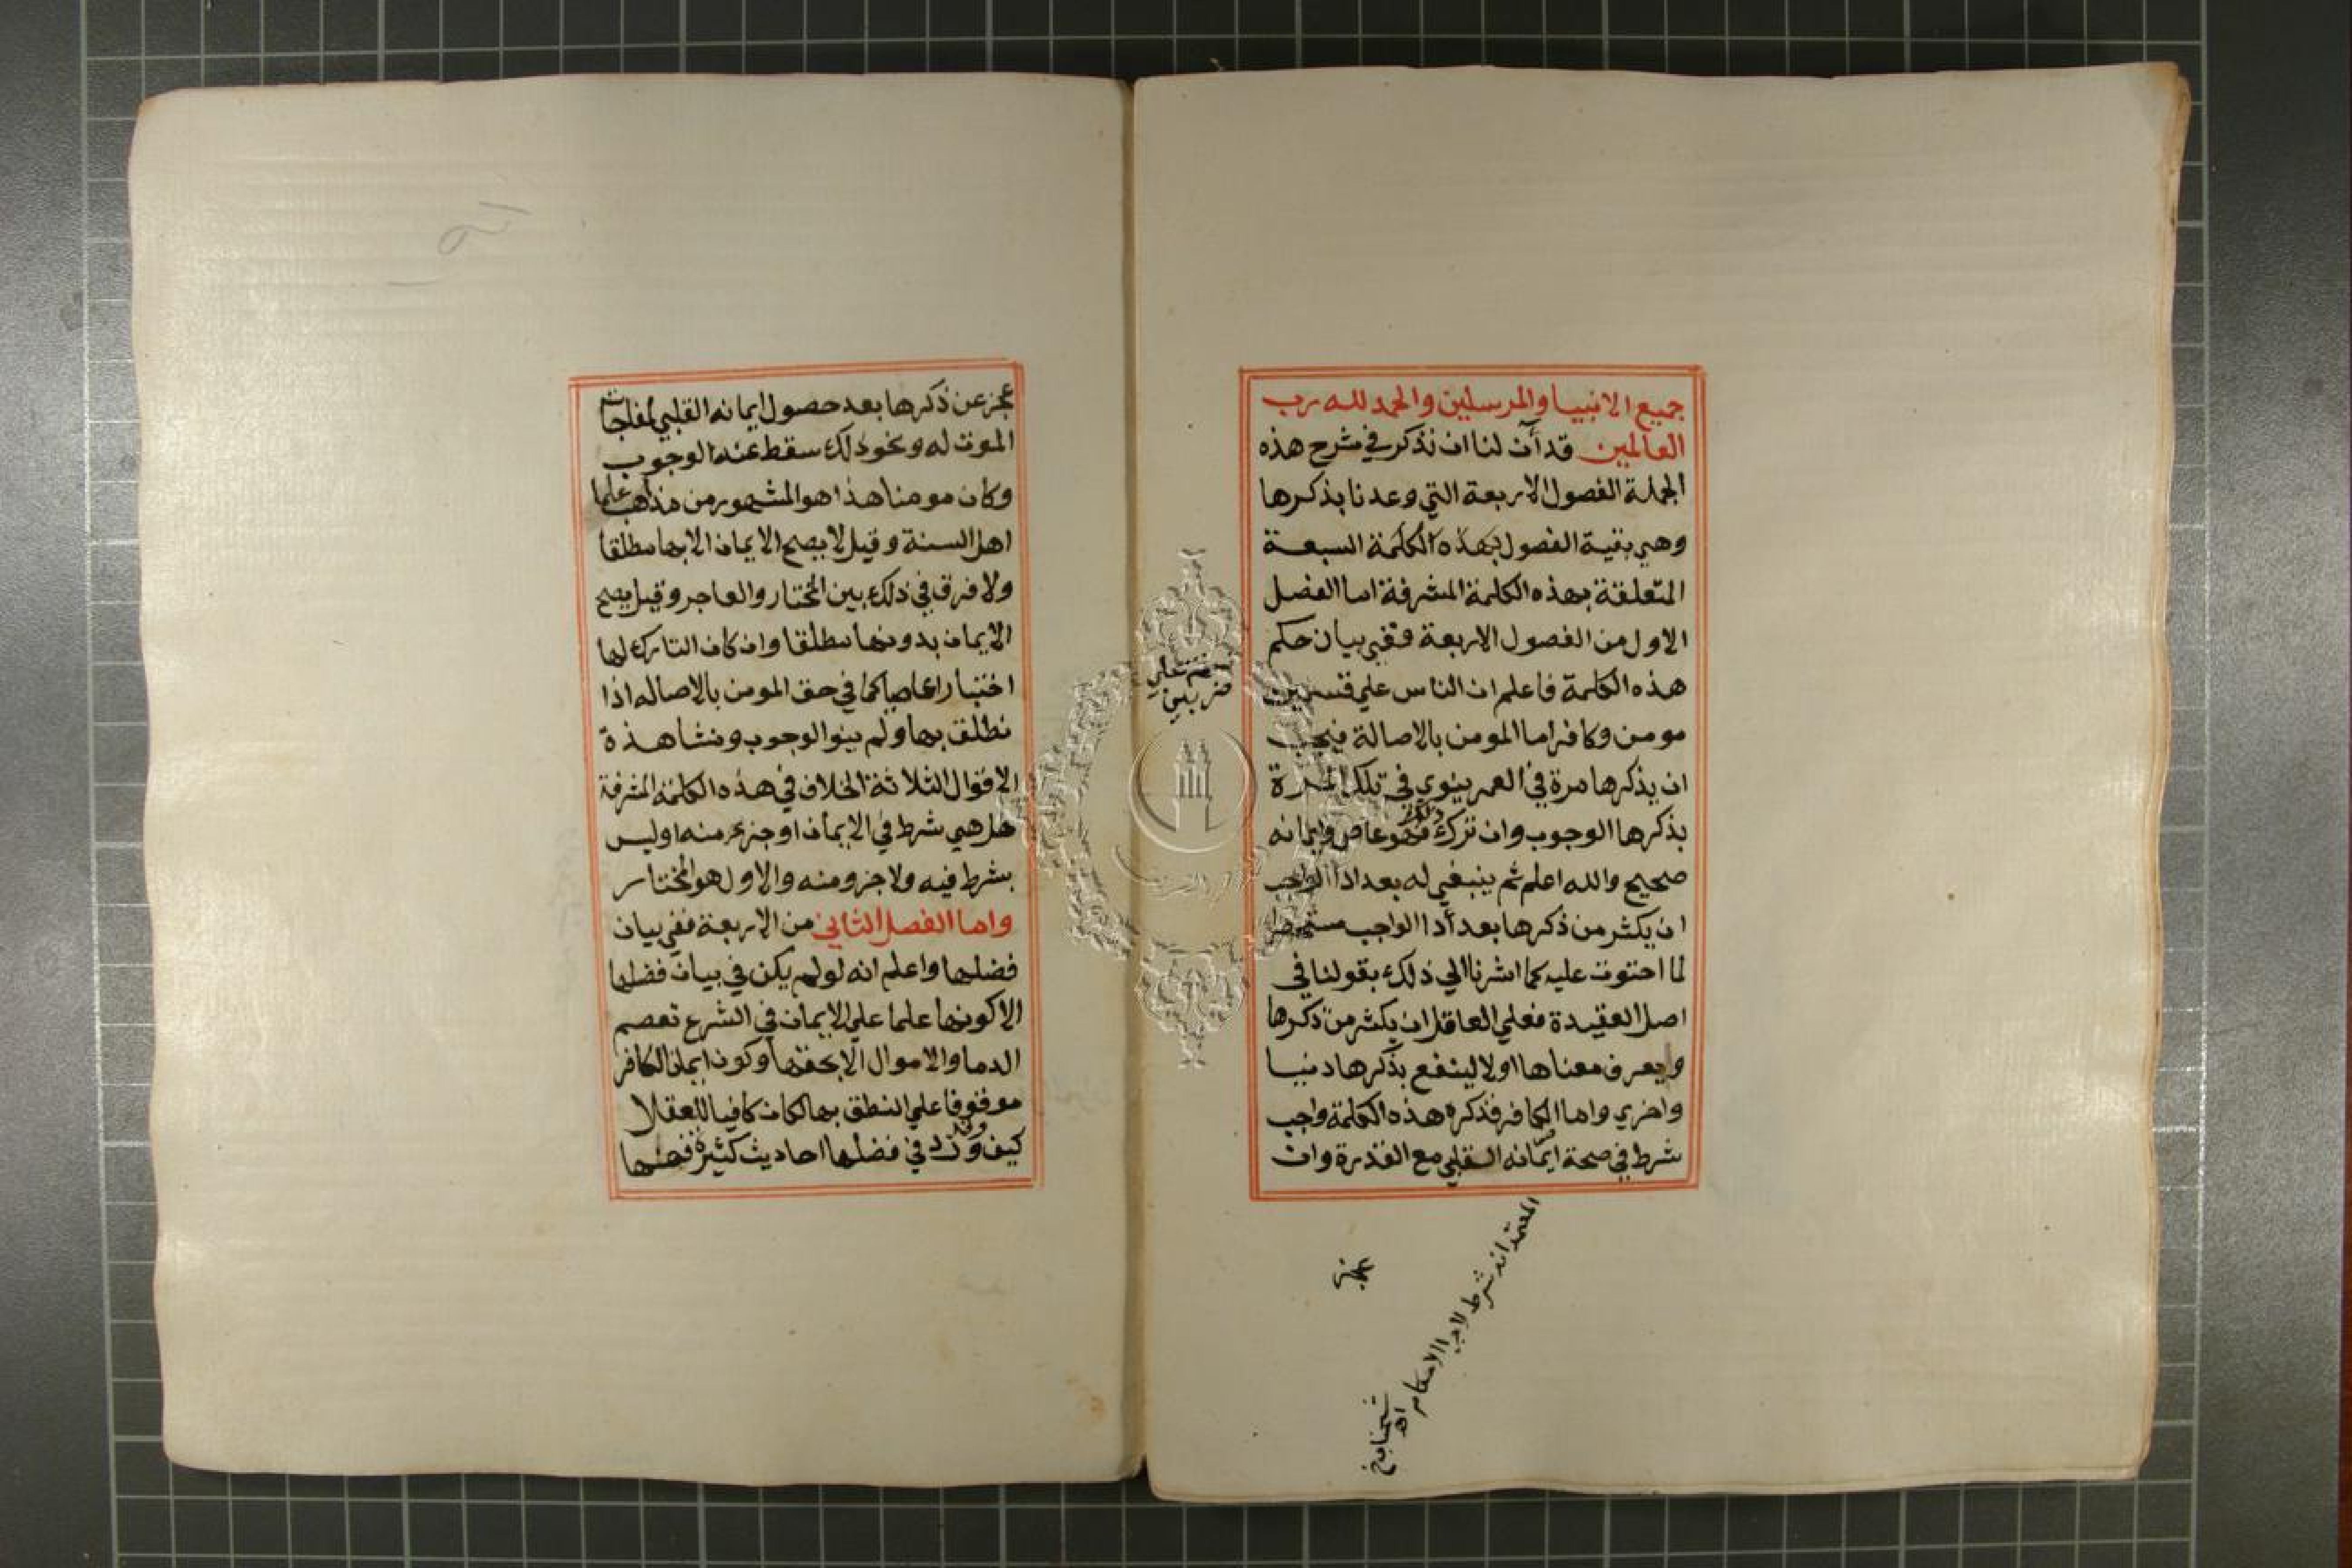 جميع الانبيا والمرسلين والحمد لله رب
العالمين قد آن لنا ان نذكر في شرح هذه
الجملة الفصول الاربعة التي وعدنا بذكرها
وهي بقية الفصول بهذه الكلمة السبعة
المتعلقة بهذه الكلمة المشرفة اما الفصل
الاول من الفصول الاربعة ففي بيان حكم
هذه الكلمة فاعلم ان الناس علي قسمين
مومن وكافر اما المومن بالاصالة فيجب
ان يذكرها مرة في العمر ينوي في تلك المرة
بذكرها الوجوب وان ترك ذلك فهو عاص وايمانه
صحيح والله اعلم ثم ينبغي له بعد اداا الواجب
ان يكثر من ذكرها بعد أداا الواجب مستحضرا
لما احتوت عليه كما اشرنا الي ذلك بقولنا في
اصل العقيدة فعلي العاقل ان يكثر من ذكرها
وليعرف معناها اولا لينتفع بذكرها دنيا
واخري واما الكافر فذكره هذه الكلمة واجب
شرط في صحة ايمانه القلبي مع القدرة وان
المعتمد انه شرط لاجرا الاحكام
اهـ
شيخنا
عجز عن ذكرها بعد حصول ايمانه القلبي لمفاجات
الموت له ونحو ذلك سقط عنه الوجوب
وكان مومنا هذا هو المشهور من مذاهب علما
اهل السنة وقيل لا يصح الايمان الا بها مطلقا
ولا فرق في ذلك بين المختار والعاجر وقيل يصح
الايمان بدونها مطلقا وان كان التارك لها
اختيارا عاصيا كما في حق المومن بالاصاله اذا
نطلق بها ولم ينو الوجوب ومنشا هذة
الاقوال الثلاثة الخلاف في هذه الكلمة المشرفة
هل هي شرط في الايمان او جزء منه او ليس
بشرط فيه ولا جزو منه والاول هو المختار
واما الفصل الثاني من الاربعة ففي بيان
فضلها واعلم انه لو لم يكن في بيان فضلها
الا كونها علما علي الايمان في الشرع تعصم
الدما والاموال الا بحقها وكون ايمان الكافر
موقوفا علي النطق بها لكان كافيا للعقلا
كيف وقد ورد في فضلها احاديث كثيرة فمنها